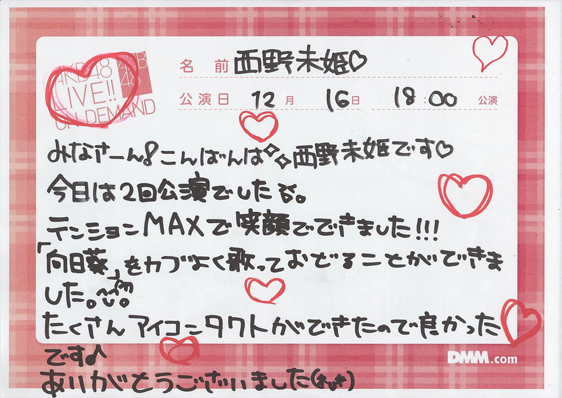 AKB48
LIVE!!
ON DEMAND
名前 西野未姫♡
公演日 12月 16日 18:00 公演
みなさーん!こんばんは 西野未姫です♡
今日は2回公演でしたぁ。
テンションMAXで笑顔でできました!!!
「向日葵」をカブよく歌っておどることができま
した。
たくさんアイコンタクトができたので良かった
です♪
ありがとうございました(*^^*)
DMM.com